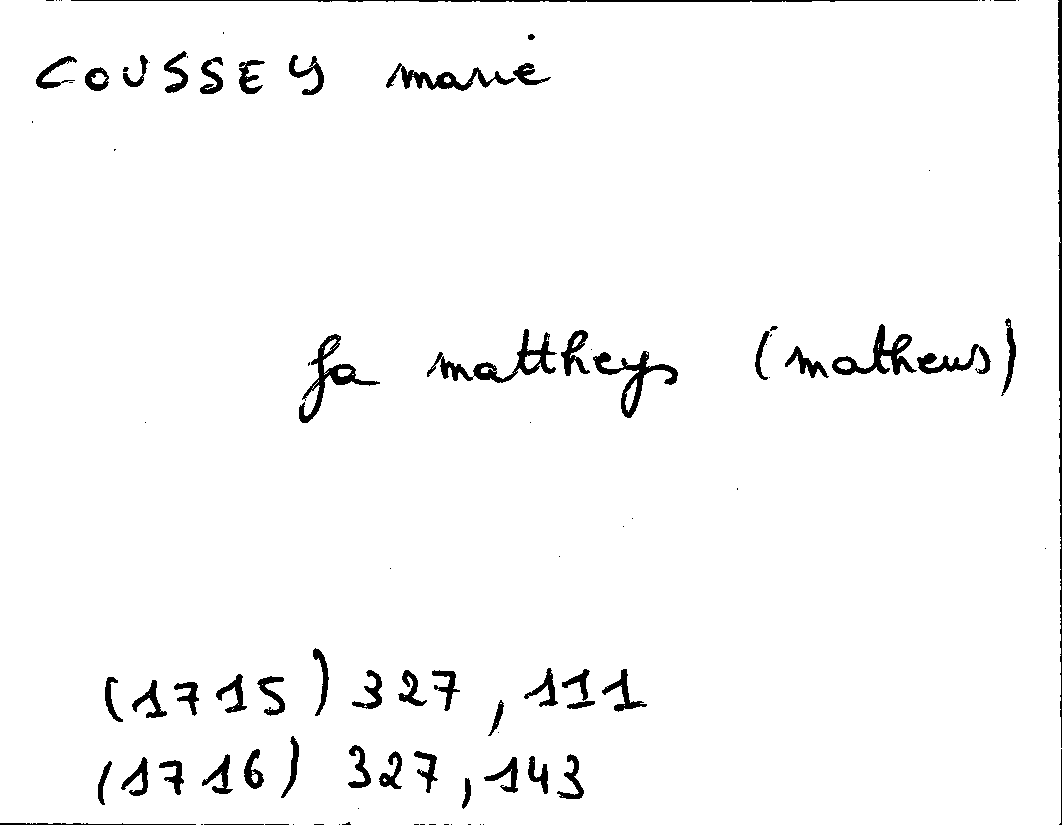 COUSSEY marie
fa mattheys (matheus)
(1715) 327, 111
(1716) 327, 143